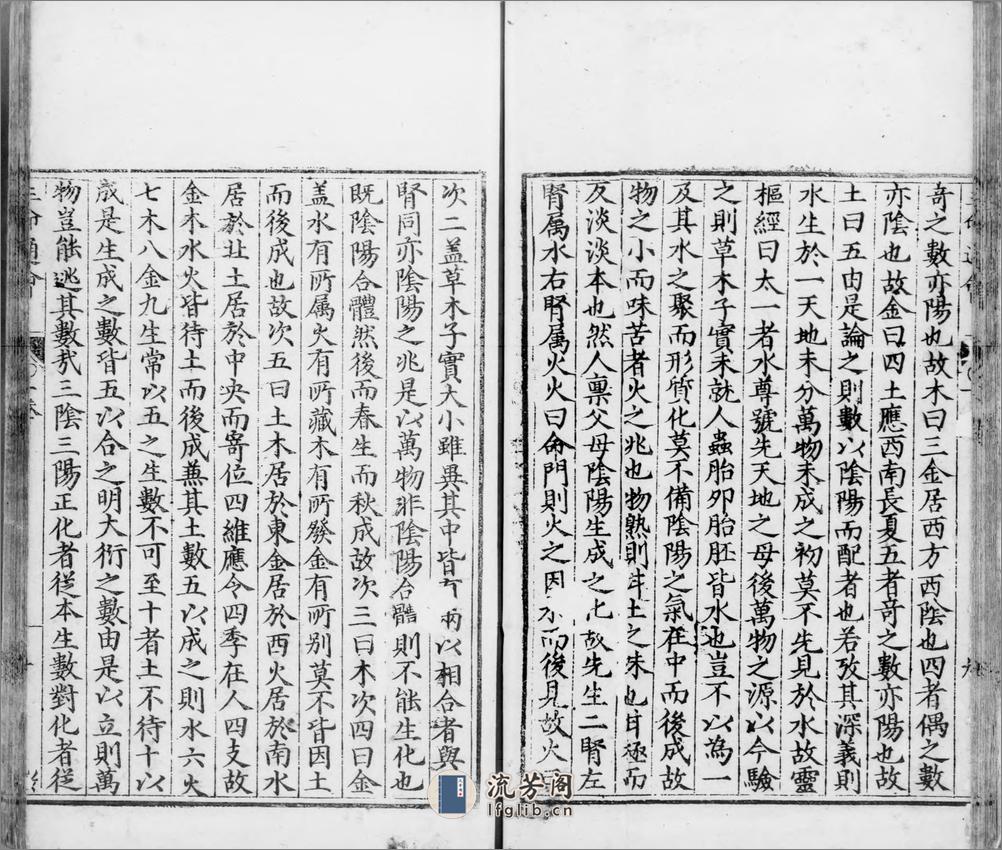 奇之數亦陽也故木曰三金居西方西陰也四者偶之數
亦陰也故金曰四土應西南長夏五者竒之數亦陽也故
土曰五由是論之則數以陰陽而配者也若攷其深義則
水生於一天地未分萬物未成之初莫不先見於水故靈
樞經曰太一者水尊號先天地之母後萬物之源以今驗
之則草木子實未就人蟲胎卵胎胚皆水也豈不以為一
及其水之聚而形質化莫不備陰陽之氣在中而後成故
物之小而味苦者火之兆也物熟則土之味也甘極而
反淡淡本也然人禀父母陰陽生成之故先生二腎左
腎属水右腎属火火曰命門則火之因而後見故火
次二盖草木子實大小雖異其中皆兩以相合者與
腎同亦陰陽之兆是以萬物非陰陽合體則不能生化也
既陰陽合體然後而春生而秋成故次三曰木次四曰金
盖水有所属火有所藏木有所發金有所别莫不皆因土
而後成也故次五曰土木居於東金居於西火居於南水
居於北土居於中央而寄位四維應令四季在人四支故
金木水火皆待土而後成兼其土數五以成之則水六火
七木八金九生常以五之生數不可至十者土不待十以
成是生成之數皆五以合之明大衍之數由是以立則萬
物豈能逃其數哉三陰三陽正化者從本生數對化者從
流芳阁
lfglib.cn